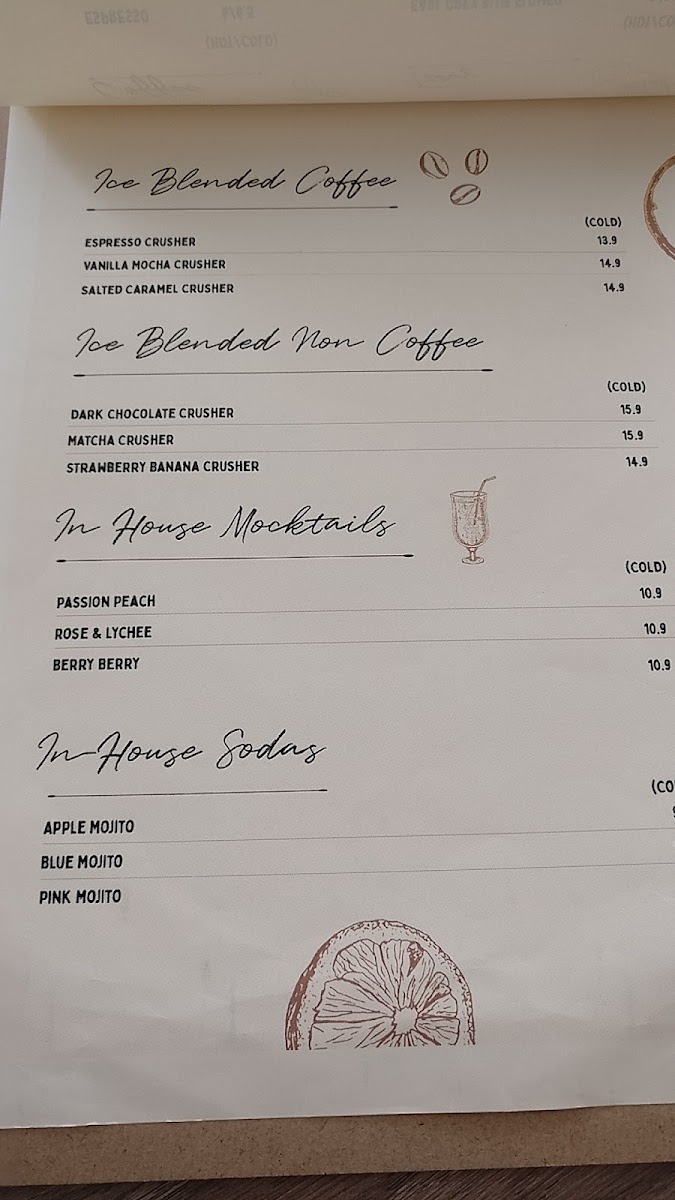 Ice Blended Coffee
(COLD)
ESPRESSO CRUSHER 13.9
VANILLA MOCHA CRUSHER 14.9
SALTED CARAMEL CRUSHER 14.9
Ice Blended Non Coffee
(COLD)
DARK CHOCOLATE CRUSHER 15.9
MATCHA CRUSHER 15.9
STRAWBERRY BANANA CRUSHER 14.9
In House Mocktails
(COLD)
PASSION PEACH 10.9
ROSE & LYCHEE 10.9
BERRY BERRY 10.9
In-House Sodas
(CO
APPLE MOJITO
BLUE MOJITO
PINK MOJITO